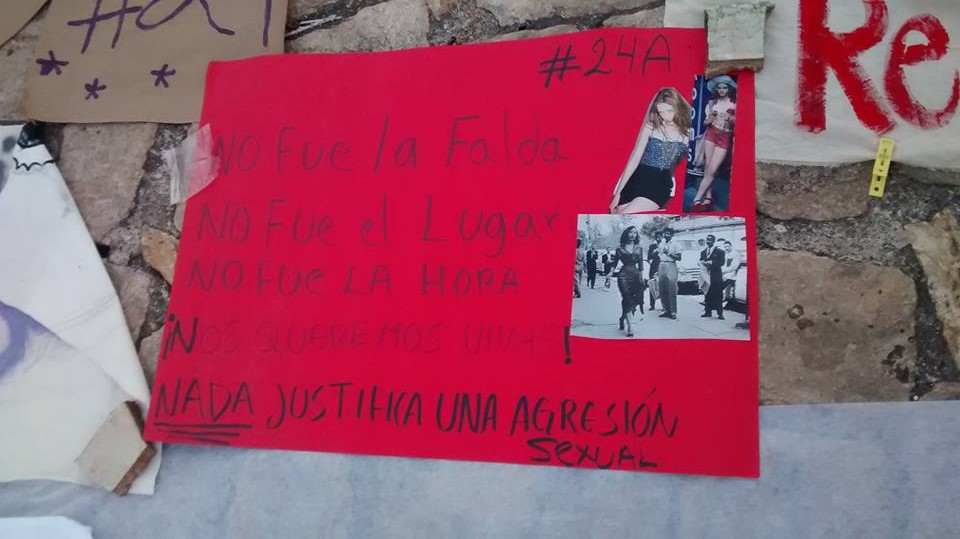 #24A
NO Fue la Falda
NO Fue el Lugar
NO FUE LA HORA
¡NOS QUEREMOS VIVAS!
NADA JUSTIFICA UNA AGRESIÓN
SEXUAL
Re